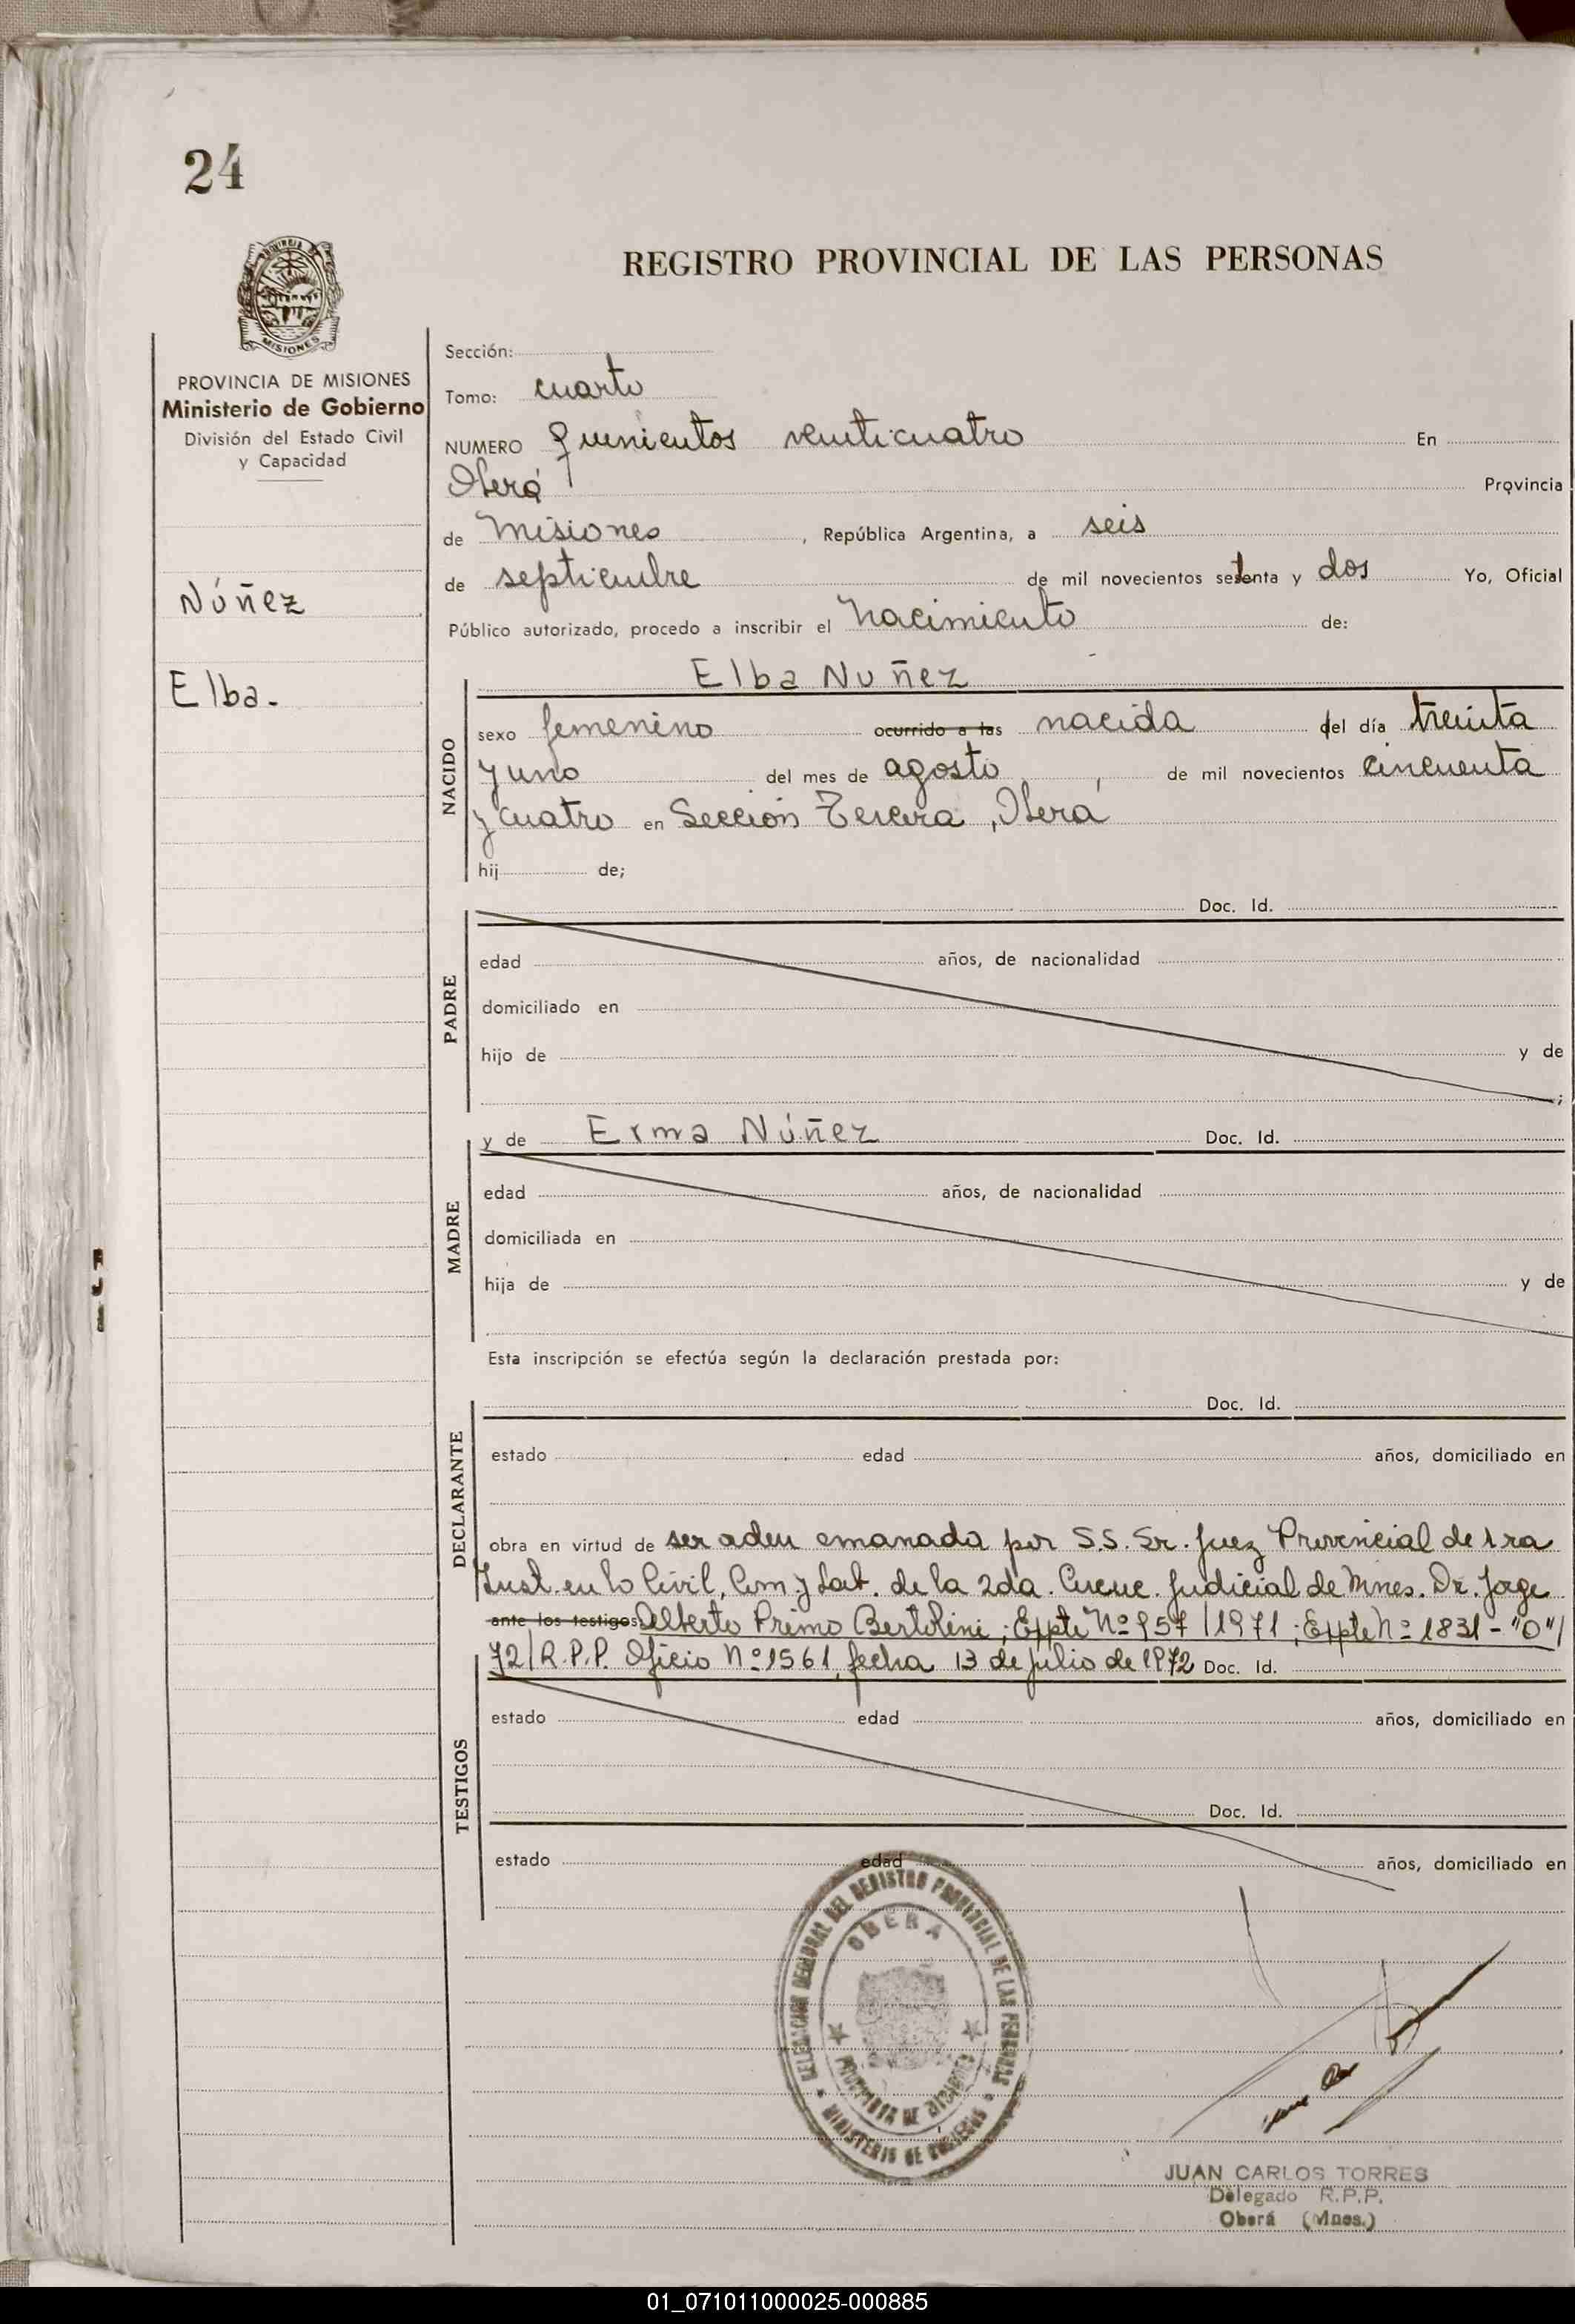 24
PROVINCIA DE MISIONES
Ministerio de Gobierno
División del Estado Civil
y Capacidad
Núñez
Elba.
REGISTRO PROVINCIAL DE LAS PERSONAS
Sección:
Tomo: cuarto
NUMERO quinientos veinticuatro En
Oberá Provincia
de Misiones, República Argentina, a seis
de septiembre de mil novecientos setenta y dos Yo, Oficial
Público autorizado, procedo a inscribir el Nacimiento de:
Elba Nuñez
NACIDO
sexo femenino ocurrido a las nacida del día treinta
y uno del mes de agosto, de mil novecientos cincuenta
y cuatro en Sección Tercera, Oberá
hij de;
PADRE
Doc. Id.
edad años, de nacionalidad
domiciliado en
hijo de y de
;
MADRE
y de Erma Núñez Doc. Id.
edad años, de nacionalidad
domiciliada en
hija de y de
Esta inscripción se efectúa según la declaración prestada por:
DECLARANTE
Doc. Id.
estado edad años, domiciliado en
obra en virtud de ser emanada por S.S. Sr. Juez Provincial de 1ra
Inst. en lo Civil, Com. y Lab. de la 2da. Judicial de Mnes. Dr. Jorge
ante los testigos Alberto Primo Bertolini; Expte Nº 957/1971; Expte Nº 1831-"O"/
72/R.P.P. Oficio Nº 1561, fecha 13 de julio de 1972 Doc. Id.
TESTIGOS
estado edad años, domiciliado en
Doc. Id.
estado edad años, domiciliado en
DELEGACION REGIONAL DEL REGISTRO PROVINCIAL DE LAS PERSONAS
OBERA
PROVINCIA DE MISIONES
MINISTERIO DE GOBIERNO
JUAN CARLOS TORRES
Delegado R.P.P.
Oberá (Mnes.)
01_071011000025-000885